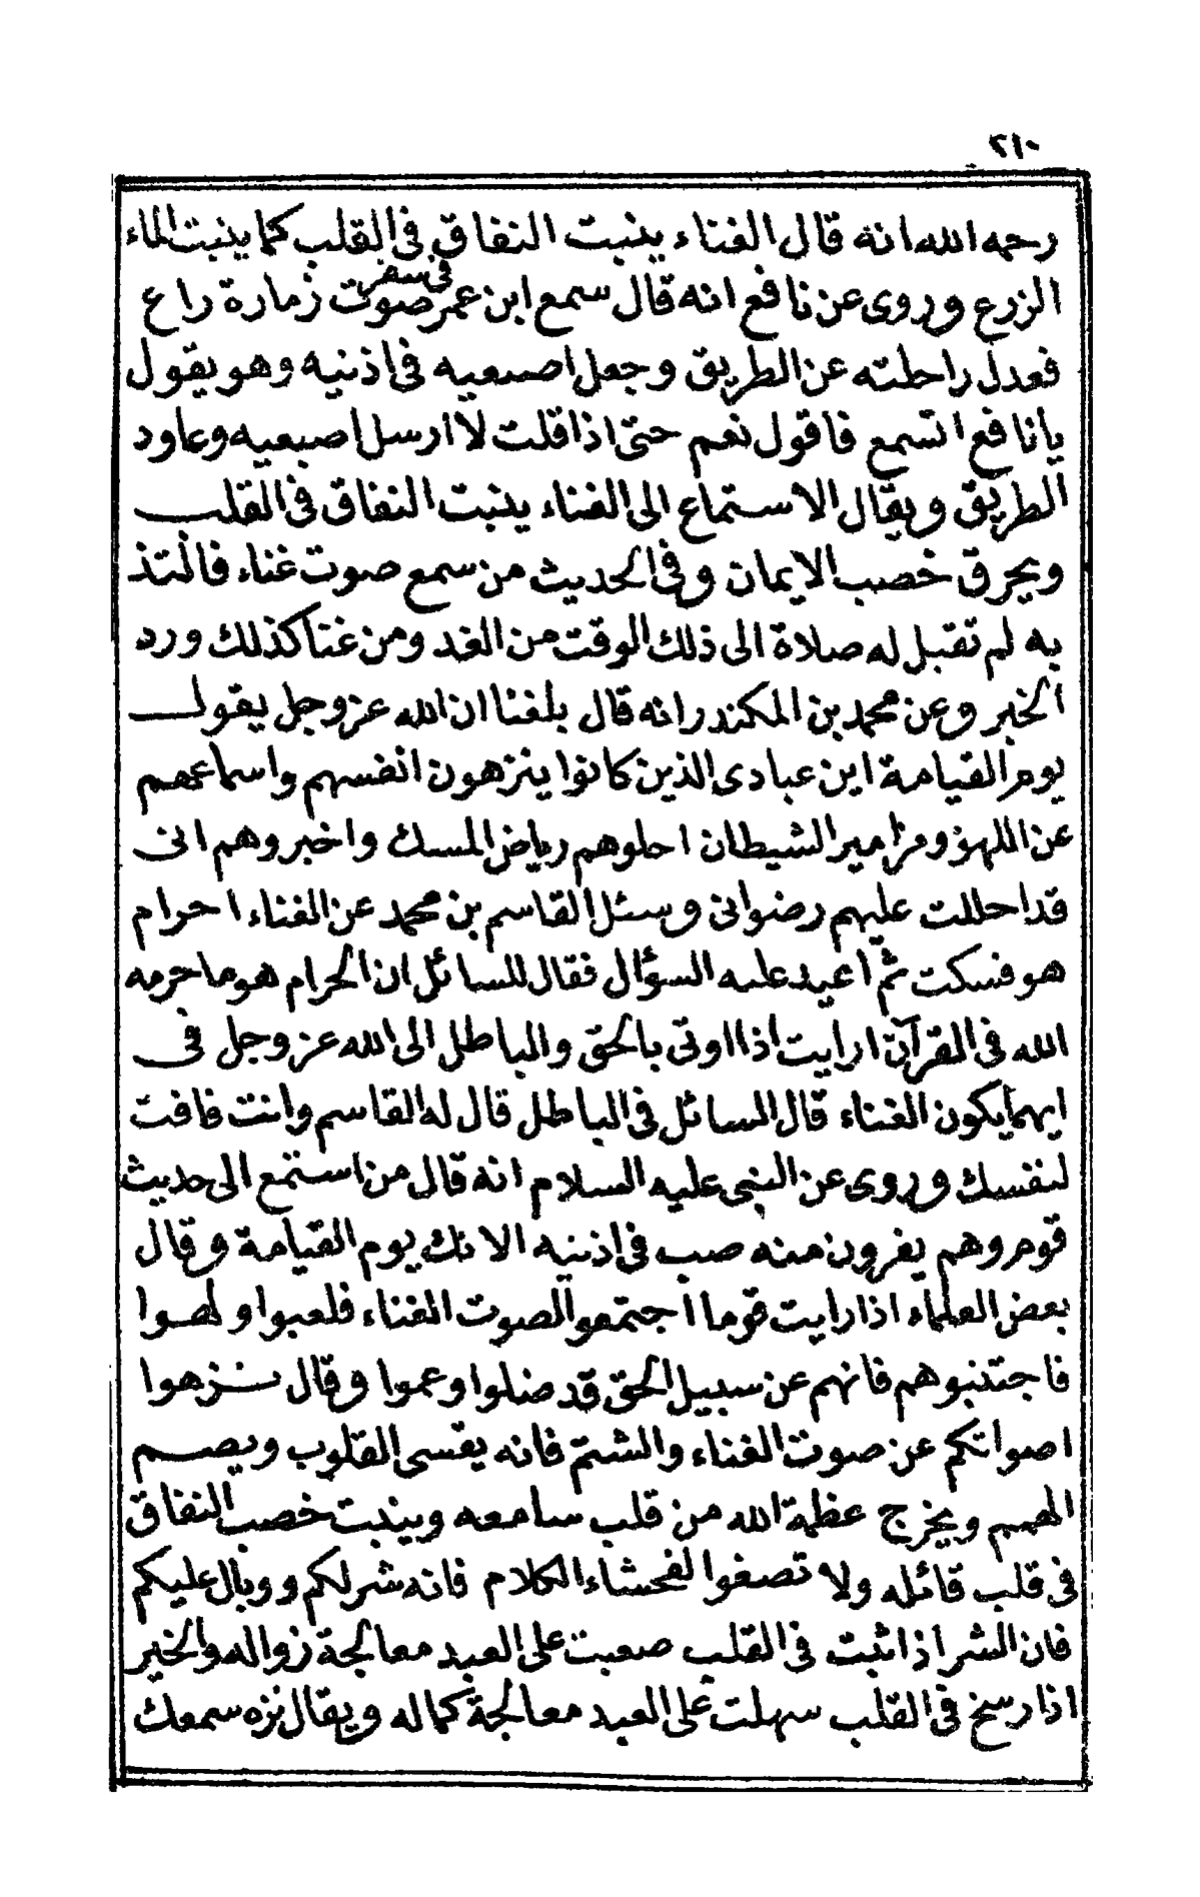 ٢١٠
رحمه الله انه قال الغناء ينبت النفاق فى القلب كما ينبت الماء
الزرع وروى عن نافع انه قال سمع ابن عمر فى سفر صوت زمارة راع
فعدل راحلته عن الطريق وجعل اصبعيه فى اذنيه وهو يقول
يا نافع اتسمع فاقول نعم حتى اذا قلت لا ارسل اصبعيه وعاود
الطريق ويقال الاستماع الى الغناء ينبت النفاق فى القلب
ويحرق خصب الايمان وفى الحديث من سمع صوت غناء فالتذ
به لم تقبل له صلاة الى ذلك الوقت من الغد ومن غنا كذلك ورد
الخبر وعن محمد بن المكندر انه قال بلغنا ان الله عز وجل يقول
يوم القيامة اين عبادى الذين كانوا ينزهون انفسهم واسماعهم
عن اللهو ومزامير الشيطان احلوهم رياض المسك واخبروهم انى
قد احللت عليهم رضوانى وسئل القاسم بن محمد عن الغناء احرام
هو فسكت ثم اعيد عليه السؤال فقال للسائل ان الحرام هو ما حرمه
الله فى القرآن ارايت اذا اوتى بالحق والباطل الى الله عز وجل فى
ايهما يكون الغناء قال السائل فى الباطل قال له القاسم وانت فافت
لنفسك وروى عن النبى عليه السلام انه قال من استمع الى حديث
قوم وهم يفرون منه صب فى اذنيه الانك يوم القيامة وقال
بعض العلماء اذا رايت قوما اجتمعوا لصوت الغناء فلعبوا ولهوا
فاجتنبوهم فانهم عن سبيل الحق قد ضلوا وعموا وقال نزهوا
اصواتكم عن صوت الغناء والشتم فانه يقسى القلوب ويصم
الهمم ويخرج عظمة الله من قلب سامعه وينبت خصب النفاق
فى قلب قائله ولا تصغوا لفحشاء الكلام فانه شر لكم ووبال عليكم
فان الشر اذا ثبت فى القلب صعبت على العبد معالجة زواله والخير
اذا رسخ فى القلب سهلت على العبد معالجة كماله ويقال نزه سمعك